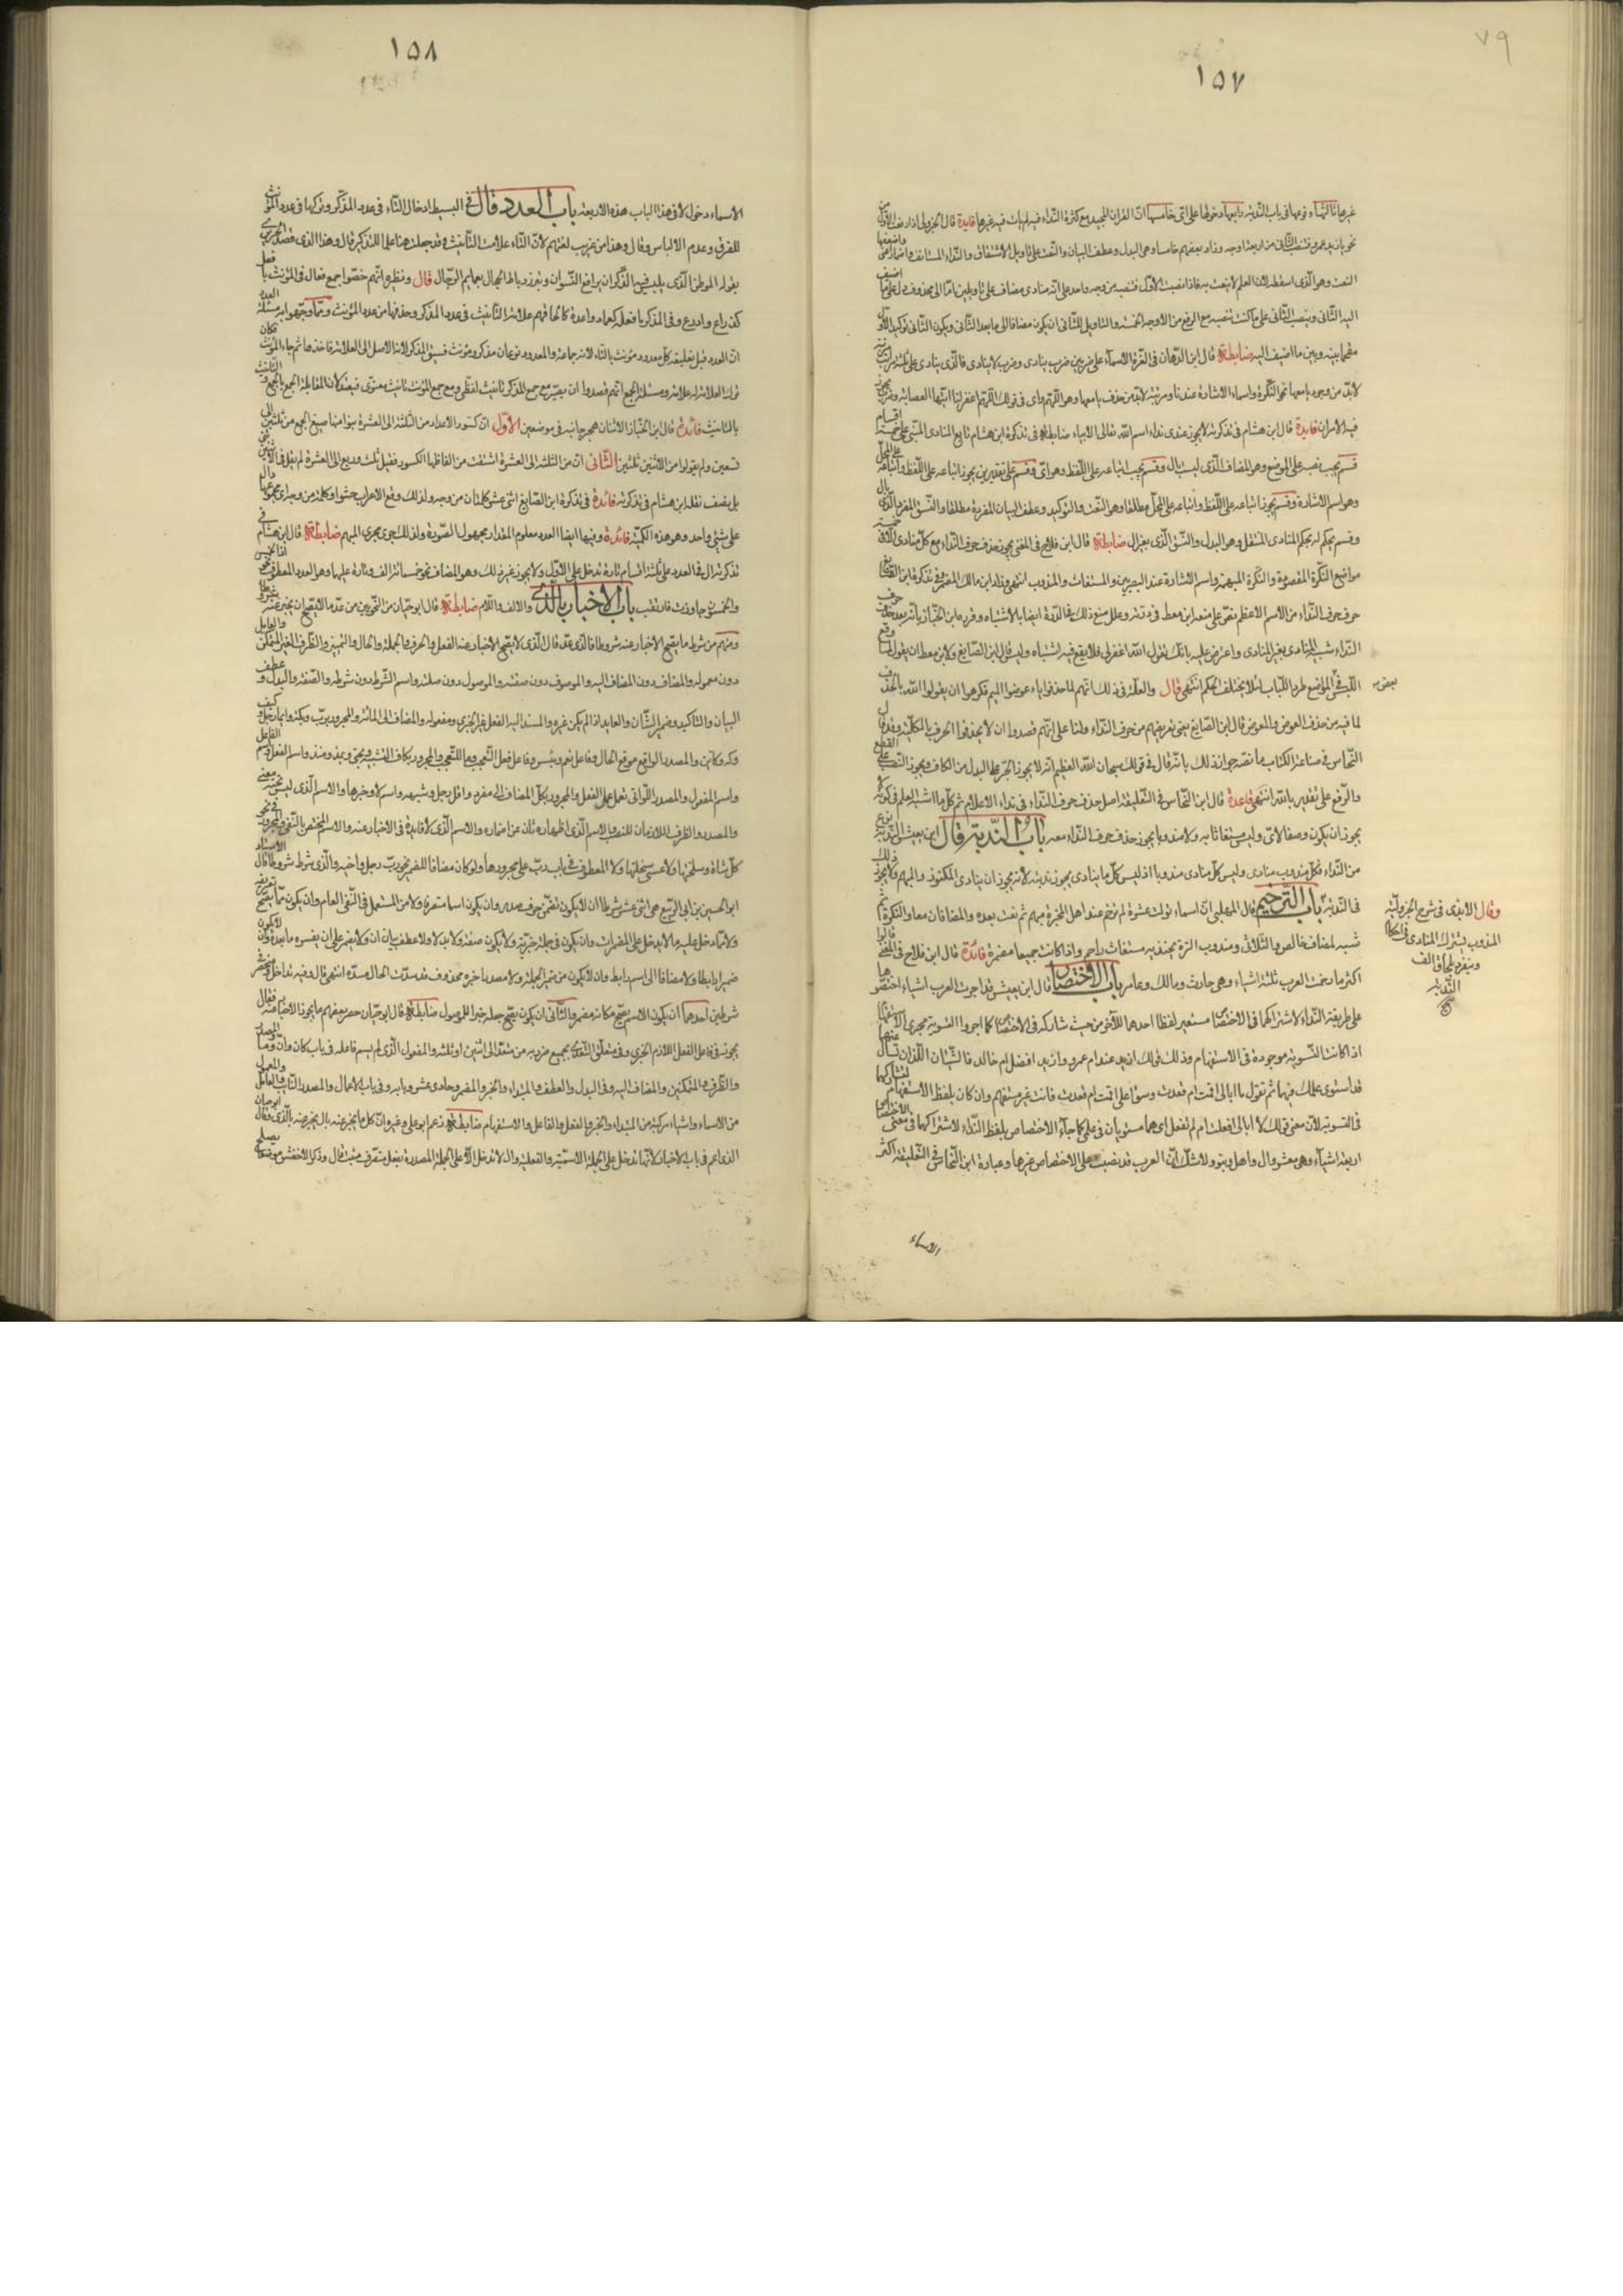 ٧٩
١٥٧
غيرها ثالثها وقوعها في باب الندبة رابعها دخولها على اي خامسها ان القران المجيد مع كثرة النداء فيه لم يات فيه غيرها فايدة قال الجزولى اذا
نحو يا زيد عمرو فتنصب الثاني من اربعة اوجه وزاد بعضهم خامسا وهي البدل وعطف البيان والنعت على تاويل الاشتقاق والنداء المستانف واضمار اعني
النعت وهو الذي اسقطه لان العلم لا ينعت به فاذا نصبت الاول فنصبه من وجه واحد على انه منادى مضاف على تاويلين اما الى محذوف دل عليه ما اضيف
اليه الثاني وينصب الثاني على ما كنت تنصبه مع الرفع من الاوجه الخمسة والتاويل الثاني ان يكون مضافا الى ما بعد الثاني ويكون الثاني توكيدا للاول
مقحما بينه وبين ما اضيف اليه ضابطة قال ابن الدهان في الغرة الاسماء على ضربين ضرب ينادى وضرب لا ينادى فالذي ينادى على ثلثة مراتب
لابد من وجود يا معها نحو النكرة واسماء الاشارة عندنا ومرتبة لابد من حذف يا معها وهو اللهم واي في قولك اللهم اغفر لنا ايتها العصابة
فيه الامران فايدة قال ابن هشام في تذكرته لا يجوز عندي نداء اسم الله تعالى الا بياء ضابطة في تذكرة ابن هشام تابع المنادى المبني على خمسة اقسام
قسم يجب نصبه على الموضع وهو المضاف الذي ليس بال وقسم يجب اتباعه على اللفظ وهو اي وقسم على تقديرين يجوز اتباعه على اللفظ واتباعه على المحل
وهو اسم الاشارة وقسم يجوز اتباعه على اللفظ واتباعه على المحل مطلقا وهو النعت والتوكيد وعطف البيان المفردة مطلقا والنسق المفرد الذي بال
وقسم يحكم له بحكم المنادى المستقل وهو البدل والنسق الذي بغير ال ضابطة قال ابن فلاح في المغني يجوز حذف حرف النداء مع كل منادى الا في خمسة
مواضع النكرة المقصودة والنكرة المبهمة واسم الاشارة عند البصريين والمستغاث والمندوب انتهى وزاد ابن مالك المضمر وفي تذكرة ابن الصايغ
حرف النداء من الاسم الاعظم نص على منعه ابن معط في درته وعلل منع ذلك في الدرة ايضا بالاشتباه وقرره ابن الخباز بانه بعد حذف حرف
النداء شبه المنادى بغير المنادى واعترض عليه بانك تقول الله اغفر لي فلا يقع فيه اشتباه وليس قال ابن الصايغ ولابن معط ان يقول لما وقع
اللبس في بعض المواضع طرد الباب لئلا يختلف الحكم انتهى قال والعلة في ذلك انهم لما حذفوا ياء عوضوا الميم فكرهوا ان يقولوا الله بالحذف
لما فيه من حذف العوض والمعوض قال ابن الصايغ يعني تعريضهم من حرف النداء ولنا على انهم قصدوا ان لا يحذفوا الحرف بالكلية وقد قال
النحاس في صناعة الكتاب ما نصه جواز ذلك بانه قال في قولك سبحان الله العظيم انه لا يجوز الجر على البدل من الكاف ويجوز النصب على القطع
والرفع على تقدير يا الله انتهى قاعدة قال ابن النحاس في التعليقة اصل حذف حرف النداء في نداء الاعلام ثم كل ما اشبه العلم في كونه لا
يجوز ان يكون وصفا لاي وليس مستغاثا به ولا مندوبا يجوز حذف حرف النداء معه باب الندبة قال ابن يعيش الندبة نوع
من النداء فكل مندوب منادى وليس كل منادى مندوبا اذ ليس كل ما ينادى يجوز ندبته لانه يجوز ان ينادى المنكور والمبهم ولا يجوز ذلك
في الندبة باب الترخيم قال المهلبي ان اسماء توك عشرة لم ترخم عند اهل الخبرة مبهم ثم نعت بعده والمضافان معا والنكرة ثم
شبه لمضاف خالص والثلاثي ومندوب الزة يحتذيه مستغاث راحم واذا كانت جميعا مضمرة فائدة قال ابن فلاح في المغني قالوا
اكثر ما رخمت العرب ثلثة اشياء وهي حارث ومالك وعامر باب الاختصاص قال ابن يعيش قد اجرت العرب اشياء اختصوها
على طريقة النداء لاشتراكهما في الاختصاص مستعير لفظ احدهما للآخر من حيث شاركه في الاختصاص كما اجروا التسوية مجرى الاستفهام
اذا كانت التسوية موجودة في الاستفهام وذلك قولك ازيد عندك ام عمرو وازيد افضل ام خالد فالشيئان اللذان تسال عنهما
قد استوى علمك فيهما ثم تقول ما ابالي اقمت ام قعدت وسواء علي اقمت ام قعدت فانت غير مستفهم وان كان بلفظ الاستفهام لتشاركهما
في التسوية لان معنى قولك لا ابالي افعلت ام لم تفعل اي هما مستويان في علمي كما جاء الاختصاص بلفظ النداء لاشتراكهما في معنى الاختصاص
اربعة اشياء وهي معشر وال واهل وبنو ولا شك ان العرب قد نصبت على الاختصاص غيرها وعبارة ابن النحاس في التعليقة اكثر
الاسماء
وقال الابدى في شرح الجزولية
المندوب يشترك المنادى في احكام
وينفرد بلحاق الف
الندبة
١٥٨
الاسماء دخولا في هذا الباب هذه الاربعة باب العدد قال في البسيط ادخال التاء في عدد المذكر وتركها في عدد المؤنث
للفرق وعدم الالباس وقال وهذا من غريب لغتهم لان التاء علامة التانيث وقد جعلت هنا علما للتذكير قال وهذا الذي قصد الحريري
بقوله الموطن الذي يلبس فيه الذكران براقع النسوان وتبرز ربات الحجال بعمايم الرجال قال ونظيره انهم خصوا جمع فعال في المؤنث بافعل
كذراع واذرع وفي المذكر بافعلة كعماد واعمدة كالحاقهم علامة التانيث في عدد المذكر وحذفها من عدد المؤنث ومما وجهوا به مسئلة العدد
ان العدد قبل تعليقه على معدود مؤنث بالتاء لانه جماعة والمعدود نوعان مذكر ومؤنث فسبق المذكر لانه الاصل الى العلامة فاخذها ثم جاء المؤنث فكان
ترك العلامة له علامة ومسئلة الجمع انهم قصدوا ان يصير مع جمع المذكر تانيث لفظي ومع جمع المؤنث تانيث معنوي فيعتدلان لمقابلة الجمع بالجمع والتانيث
بالتانيث فائدة قال ابن الخباز الاثنان هجر جانبه في موضعين الاول ان كسور الاعداد من الثلثة الى العشرة بنوا منها صيغ الجمع من ثلثين الى
تسعين ولم يقولوا من الاثنين ثنيين الثاني ان من الثلثة الى العشرة اشتقت من الفاظها الكسور فقيل ثلث وربع الى العشرة لم يقل في الاثنين ثني
بل نصف نقله ابن هشام في تذكرته فائدة في تذكرة ابن الصايغ اثنى عشر كلمتان من وجه ولذلك وقع الاعراب حشوا وكلمة من وجه اي مجموعها دال
على شئ واحد وهو هذه الكمية فائدة وفيها ايضا العدد معلوم المقدار مجهول الصورة ولذلك جرى مجرى المبهم ضابطة قال ابن هشام في
تذكرته ال في العدد على ثلثة اقسام تارة تدخل على الاول ولا يجوز غير ذلك وهو المضاف نحو خمسمائة الف وتارة عليهما وهو العدد المعطوف نحو
باب الاخبار بالذي والالف واللام ضابطة قال ابو حيان من النحويين من عد ما لا يصح ان يخبر عنه
ومنهم من شرط ما يصح الاخبار عنه شروطا فالذي عد قال الذي لا يصح الاخبار عنه الفعل والحرف والجملة والحال والتمييز والظرف الغير المتمكن والعامل
دون معموله والمضاف دون المضاف اليه والموصوف دون صفته والموصول دون صلته واسم الشرط دون شرطه والصفة والبدل وعطف
البيان والتاكيد وضمير الشان والعايد اذا لم يكن غيره والمسند اليه الفعل غير الخبري ومفعوله والمضاف الى المائة والمجرور برب وبكم وايما رجل وكيف
وكم وكاين والمصدر الواقع موقع الحال وفاعل نعم وبئس وفاعل فعل التعجب وما للتعجب والمجرور بكاف التشبيه وبحتى وبمذ ومنذ واسم الفعل واسم الفاعل
واسم المفعول والمصدر اللواتي تعمل عمل الفعل والمجرور بكل المضاف الى مفرد واقل رجل وشبهه واسم لا وخبرها والاسم الذي ليس تحته معنى
والمصدر والظرف اللازمان للنصب والاسم الذي اظهاره ثان عن اضماره والاسم الذي لا فايدة في الاخبار عنه والاسم المختص بالنفي ومجرور في نحو
كل شاة وسخلتها ولا عسى سخلتها ولا المعطوف في باب رب على مجرورها ولو كان مضافا للضمير نحو رب رجل واخيه والذي شرط شروطا قال الاستاذ
ابو الحسين بن ابي الربيع هي اثنى عشر شرطا ان لا يكون تضمن حرف صدر وان يكون اسما متصرفا ولا من المستعمل في النفي العام وان يكون مما يصح تعريفه
ولا مما دخل عليه ما لا يدخل على المضمرات وان يكون في جملة خبرية ولا يكون صفة ولا بدلا ولا عطف بيان وان لا يضمر على ان يفسره ما بعده وان لا يكون
ضميرا رابطا ولا مضافا الى اسم رابط وان لا يكون من ضمير الجملة ولا مصدرا خبره محذوف قد سدت الحال مسده انتهى قال وفيه تداخل وينحصر في
شرطين احدهما ان يكون الاسم يصح مكانه مضمر والثاني ان يكون يصح جعله خبرا للموصول ضابطة قال ابو حيان حصر بعضهم ما يجوز الاخبار عنه فقال
يجوز في فاعل الفعل اللازم الخبري وفي متعلق المتعدي بجميع ضروبه من متعد الى اثنين او ثلثة والمفعول الذي لم يسم فاعله في باب كان وان وما والمصدر
والظرف المتمكنين والمضاف اليه وفي البدل والعطف والمبتداء والخبر والمضمر وحادي عشر وبابه وفي باب الاعمال والمصدر النايب والعامل والمعمول
من الاسماء واشياء مركبة من المبتداء والخبر والفعل والفاعل والاستفهام ضابطة زعم ابو علي وغيره ان كل ما يخبر عنه بال يخبر عنه بالذي وقال ابو حيان
الذي اعم في باب الاخبار لانها تدخل على الجملة الاسمية والفعلية وال لا تدخل الا على الجملة المصدرة بفعل متصرف مثبت قال وذكر الاخفش موضعا يصلح